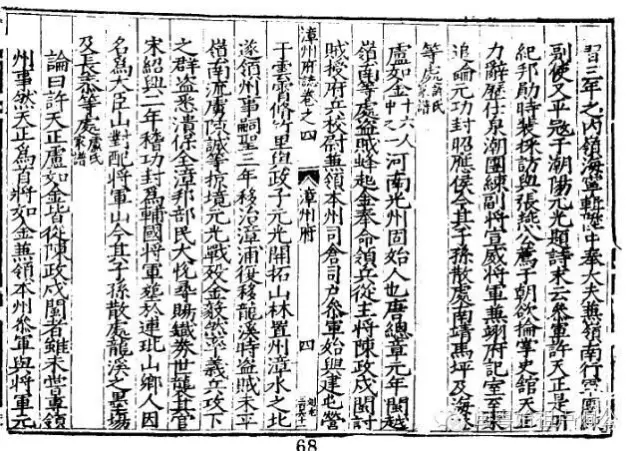 習三年之內領海寧輯陞中奉大夫兼嶺南行軍團
副使又平寇于潮陽元光題詩末云參軍許天正是所
紀邦勛時裴採訪與張燕公薦于朝欲掄掌史館天正
力辭歷仕泉潮團練副將宣威將軍兼翊府記室至宋
追論元功封昭應侯今其子孫散處南靖馬坪及海
等處 許氏家譜
盧如金 十六人中之一 河南光州固始人也唐總章元年閩越
嶺南等處盜賊蜂起金奉命領兵從主將陳政戍閩討
賊授府兵校尉兼領本州司倉司戶參軍始與建屯營
于雲霄脩竹里與政子元光開拓山林置州漳水之北
漳州府誌卷之四 漳州府 四
遂領州事嗣聖三年移治漳浦復移龍溪時盜賊未平
嶺南流虜陳誠等掠境元光戰歿金毅然率義兵攻下
之群盜悉潰保全漳邦部民大悅尋賜鐵券世襲其官
宋紹興二年稽功封為輔國將軍塟於連玭山鄉人因
名為大臣山對配將軍山今其子孫散處龍溪之墨場
及長泰等處 盧氏家譜
論曰許天正盧如金皆從陳政戍閩者雖未世專領
州事然天正為首將如金兼領本州參軍與將軍元
68